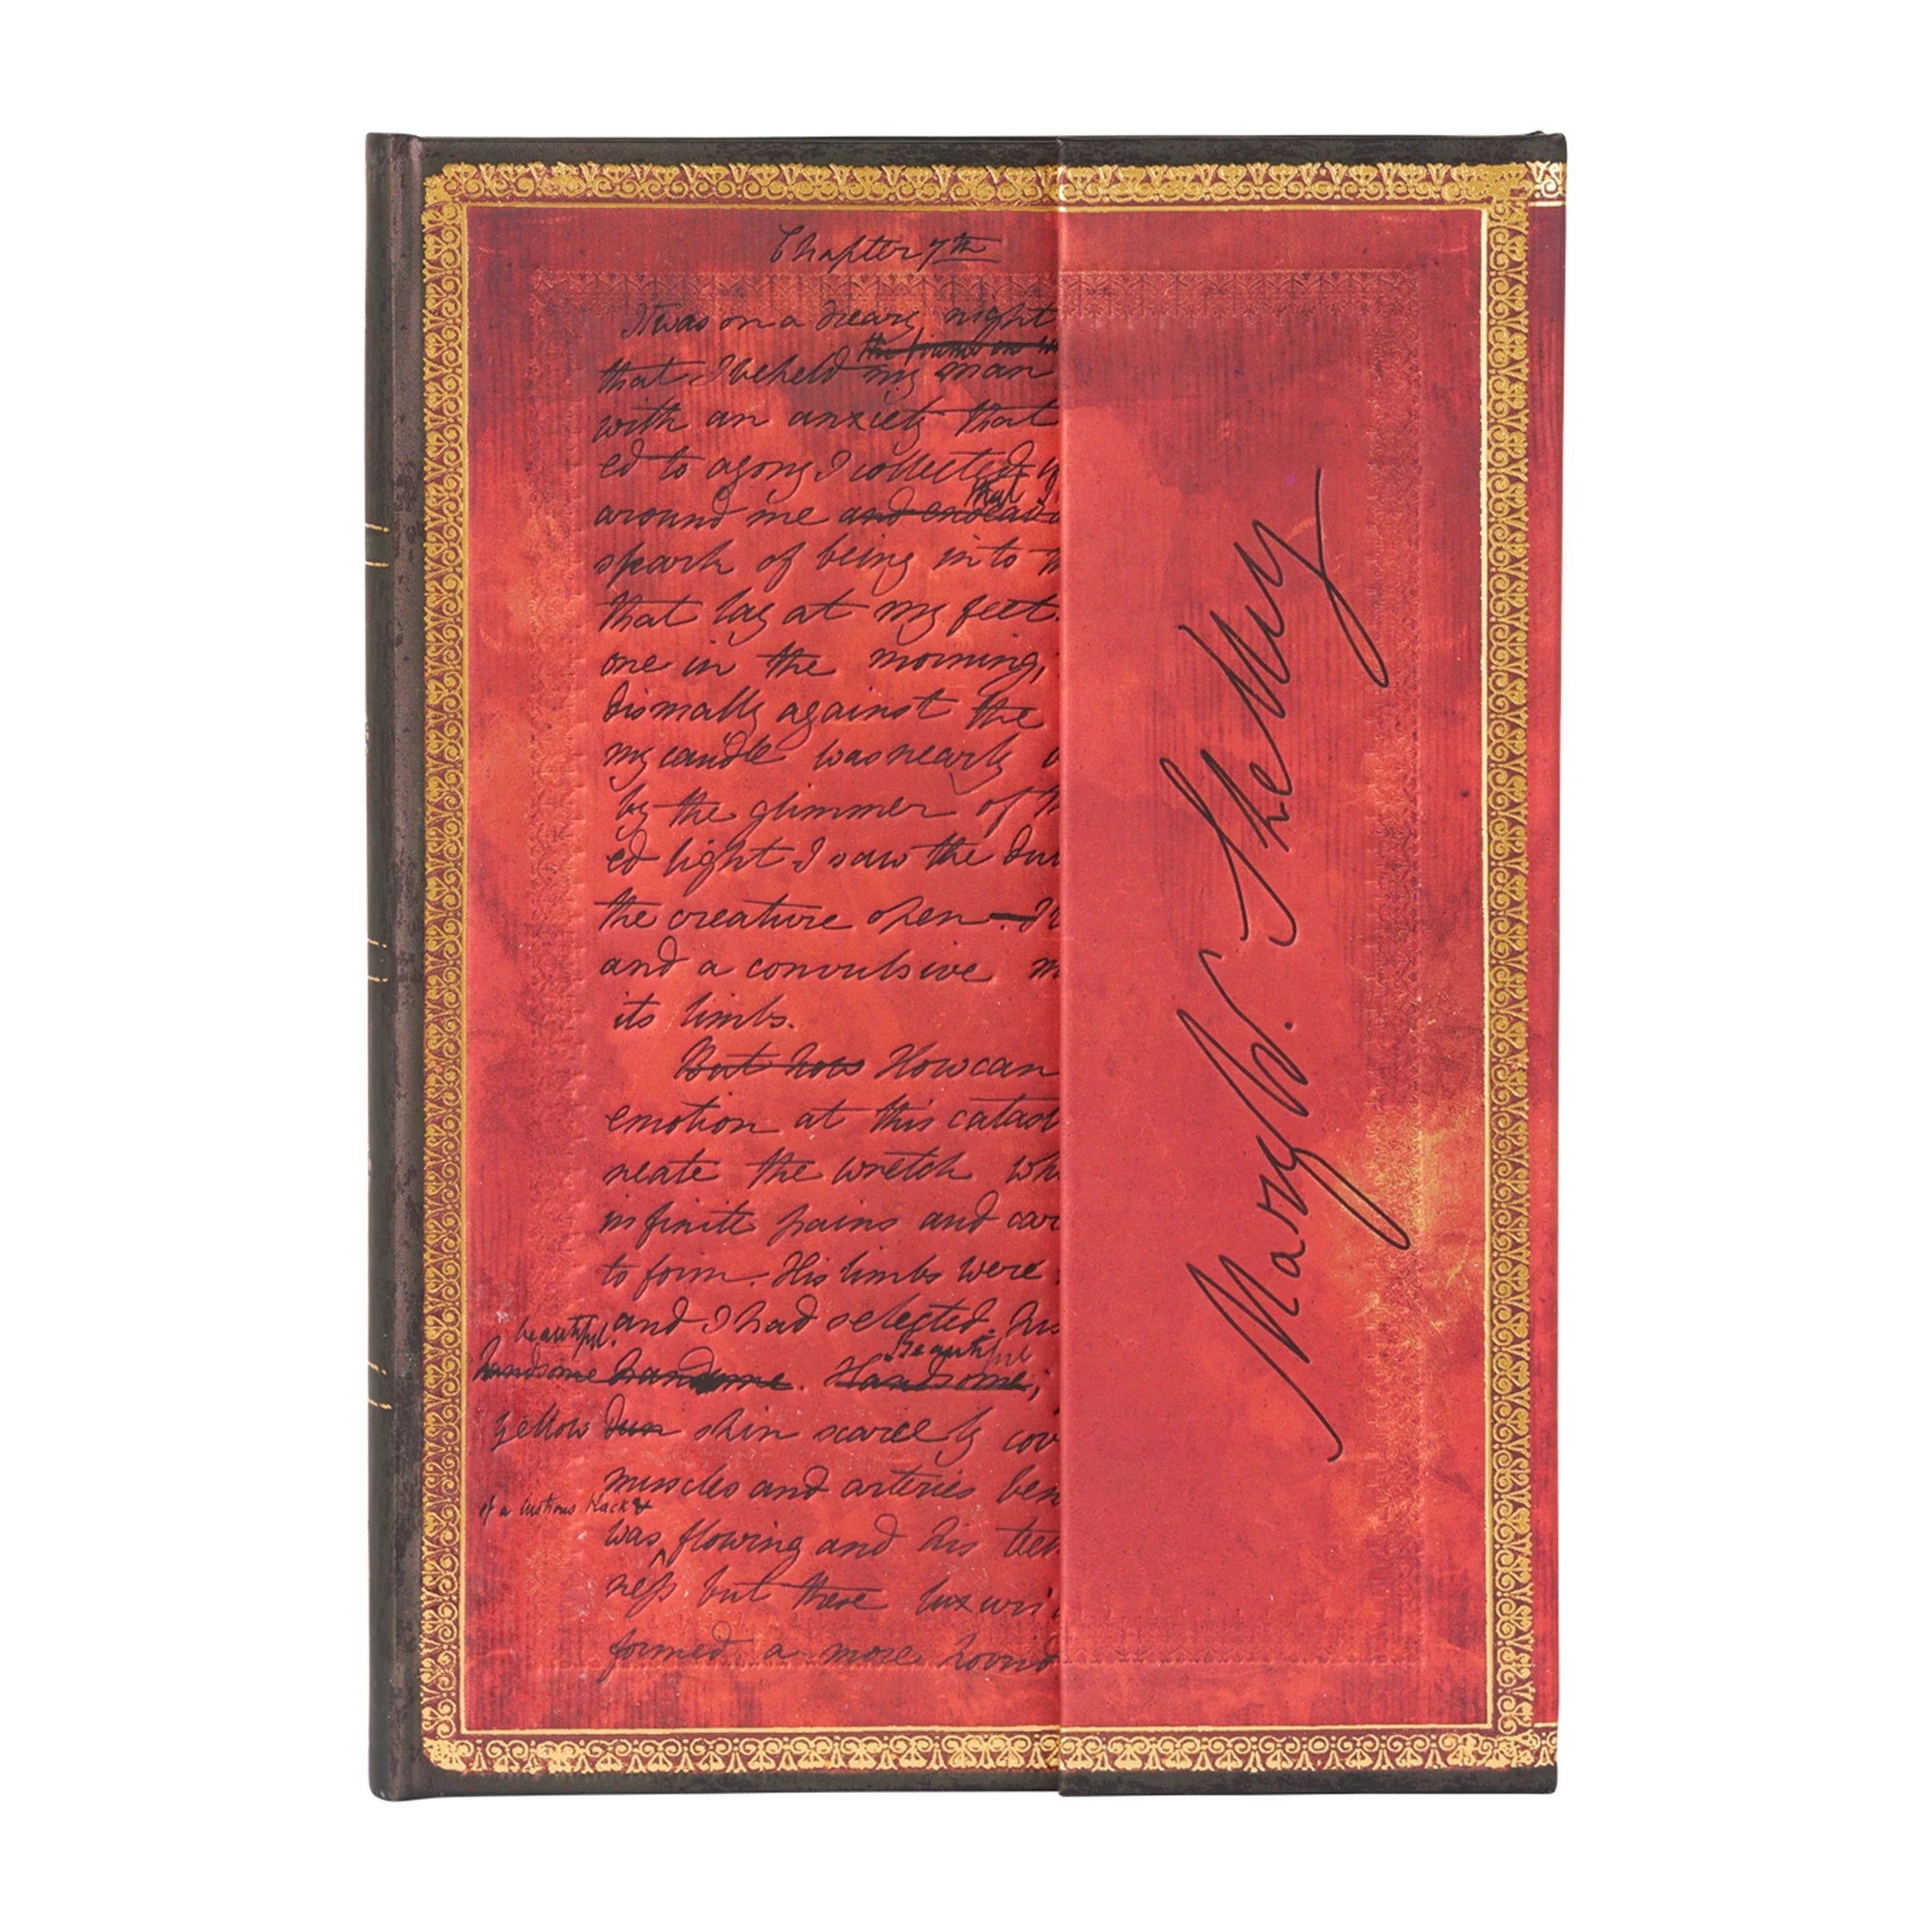 Chapter 7th
It was on a dreary night
that I beheld my man
with an anxiety that
ed to agony I collected
that I
around me and endeavo
spark of being into th
that lay at my feet.
one in the morning,
dismally against the
my candle was nearly
by the glimmer of th
ed light I saw the dul
the creature open—I
and a convulsive m
its limbs.
But how How can
emotion at this catast
neate the wretch wh
infinite pains and car
to form. His limbs were
and I had selected his
beautiful. Beautiful
handsome handsome. Handsome;
yellow dun skin scarcely cov
muscles and arteries ben
of a lustrous black &
was flowing and his tee
ness but these luxuri
formed a more horrid
Mary W. Shelley